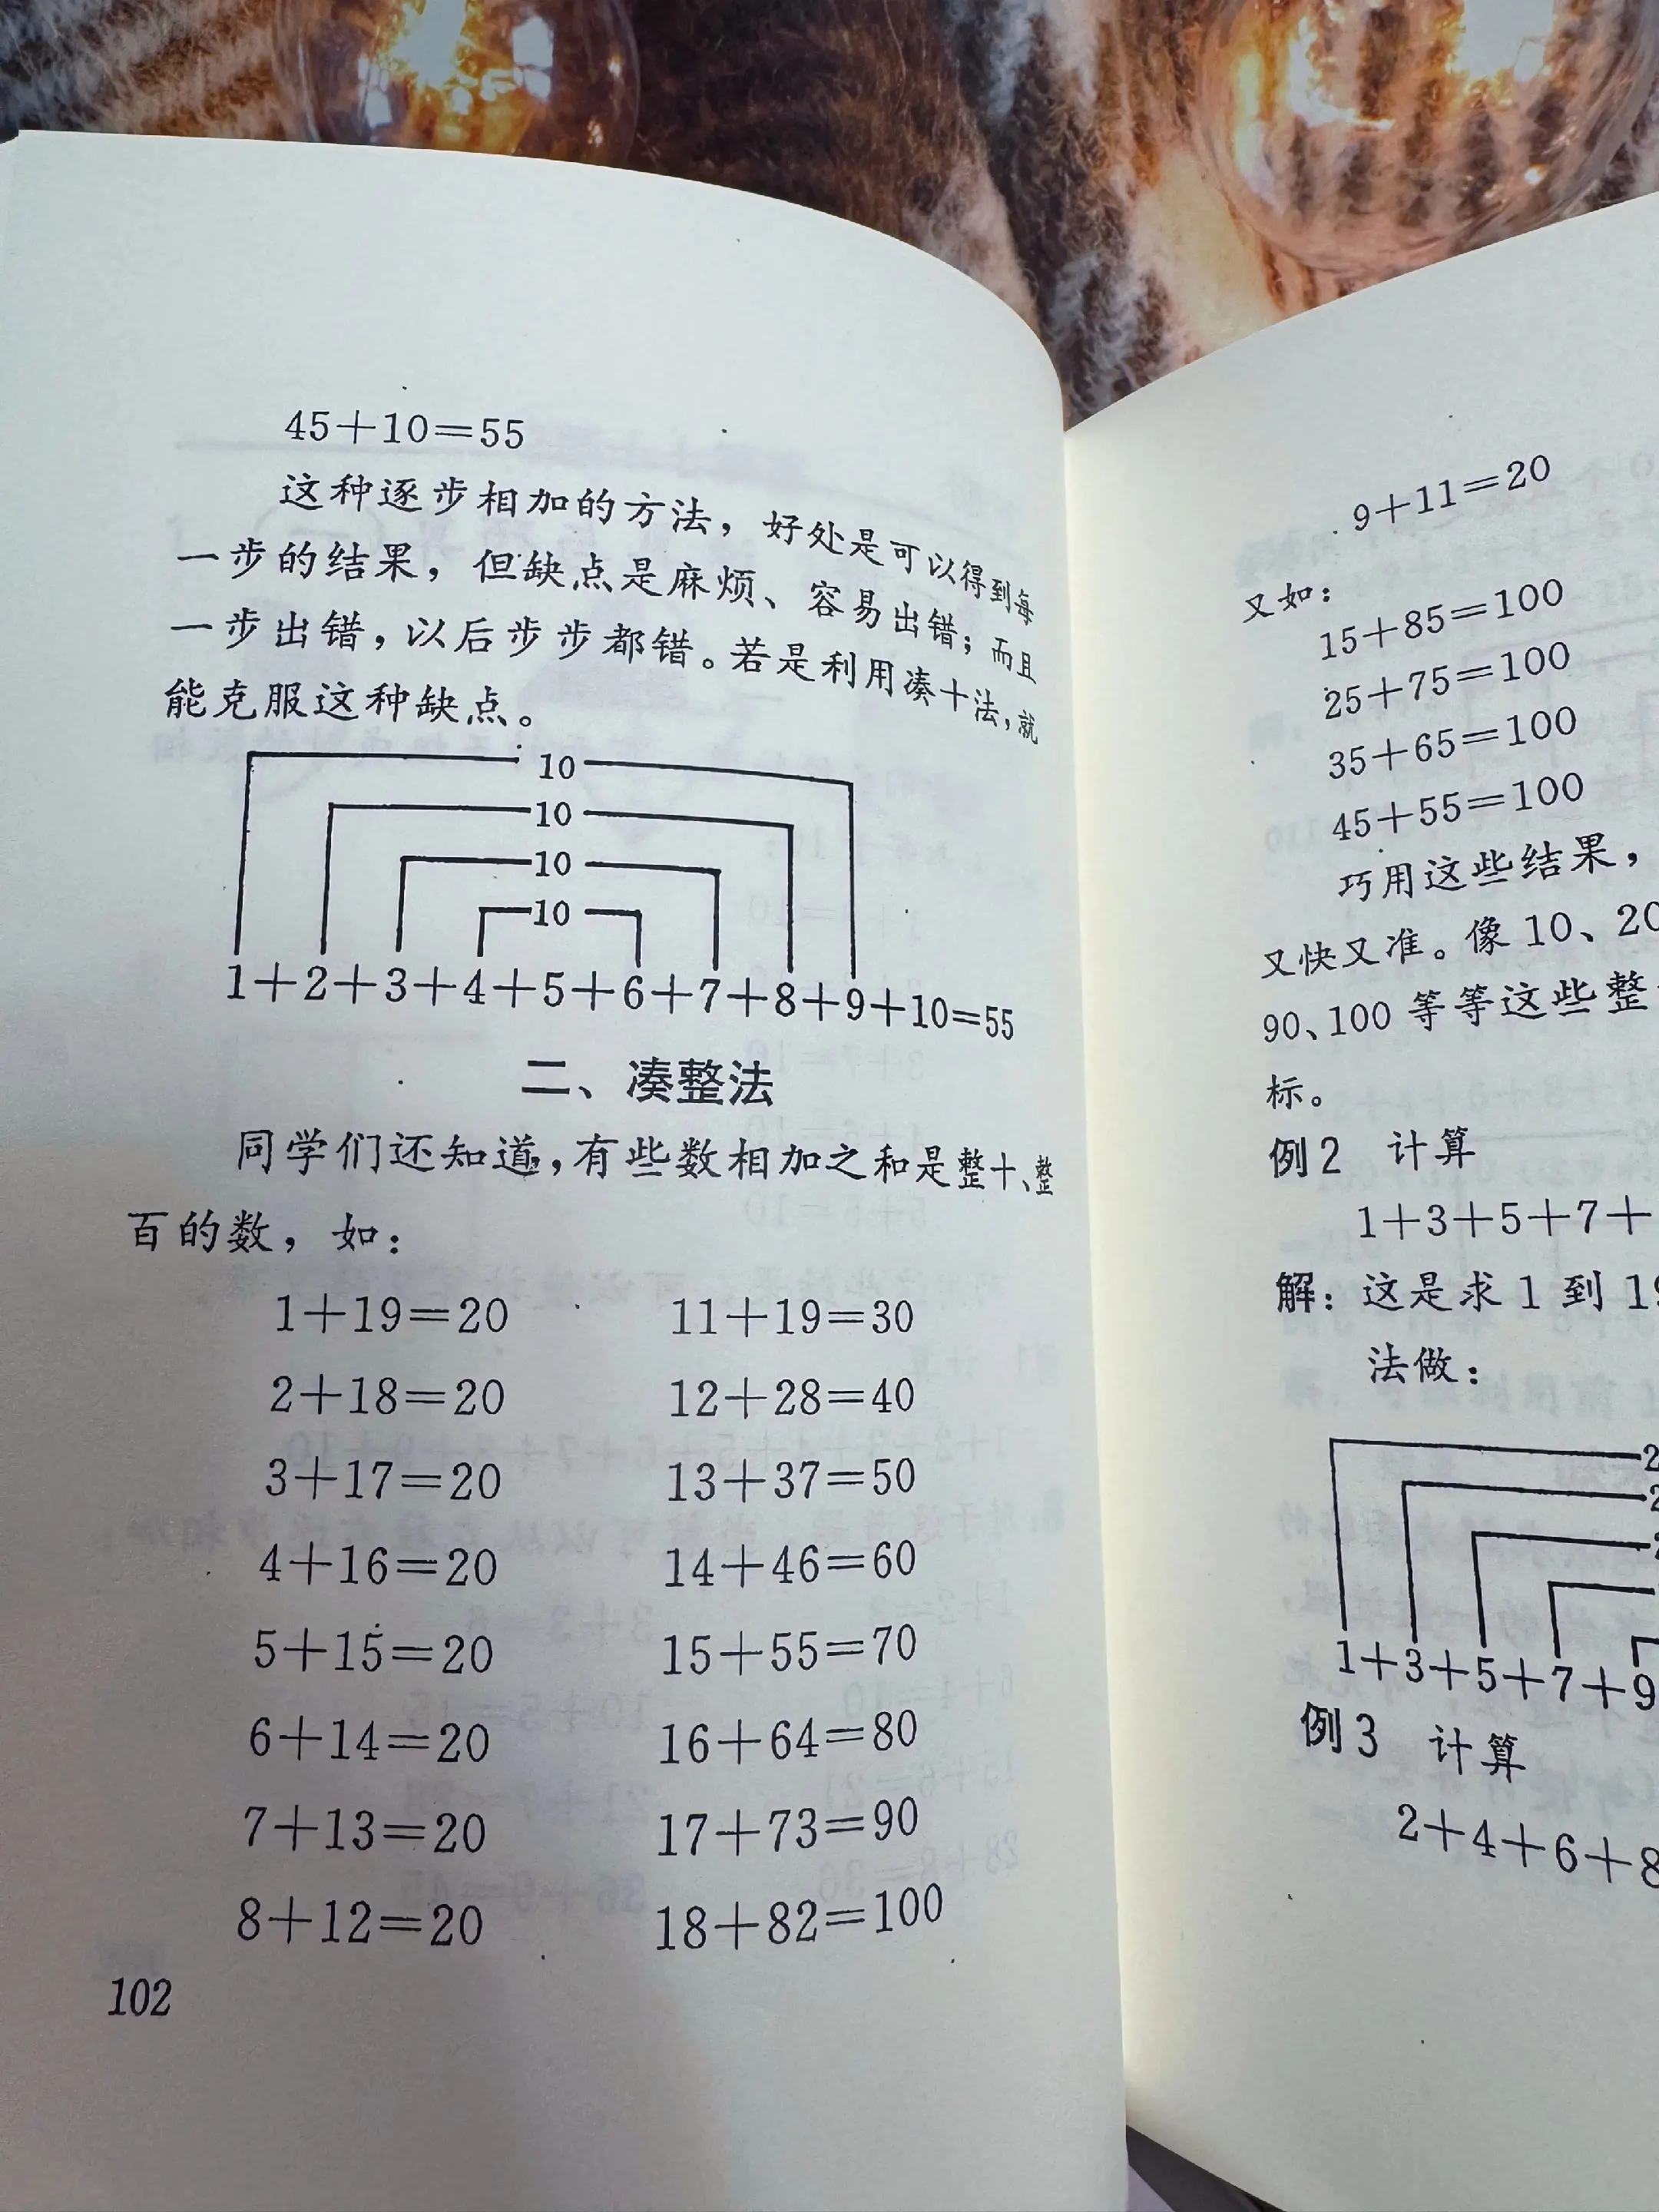 45+10=55
这种逐步相加的方法，好处是可以得到每
一步的结果，但缺点是麻烦、容易出错；而且
一步出错，以后步步都错。若是利用凑十法，就
能克服这种缺点。
10
10
10
10
1+2+3+4+5+6+7+8+9+10=55
二、凑整法
同学们还知道，有些数相加之和是整十、整
百的数，如：
1+19=20 11+19=30
2+18=20 12+28=40
3+17=20 13+37=50
4+16=20 14+46=60
5+15=20 15+55=70
6+14=20 16+64=80
7+13=20 17+73=90
8+12=20 18+82=100
102
9+11=20
又如：
15+85=100
25+75=100
35+65=100
45+55=100
巧用这些结果，
又快又准。像 10、20
90、100 等等这些整
标。
例2 计算
1+3+5+7+
解：这是求 1 到 19
法做：
2
2
2
1+3+5+7+9
例3 计算
2+4+6+8